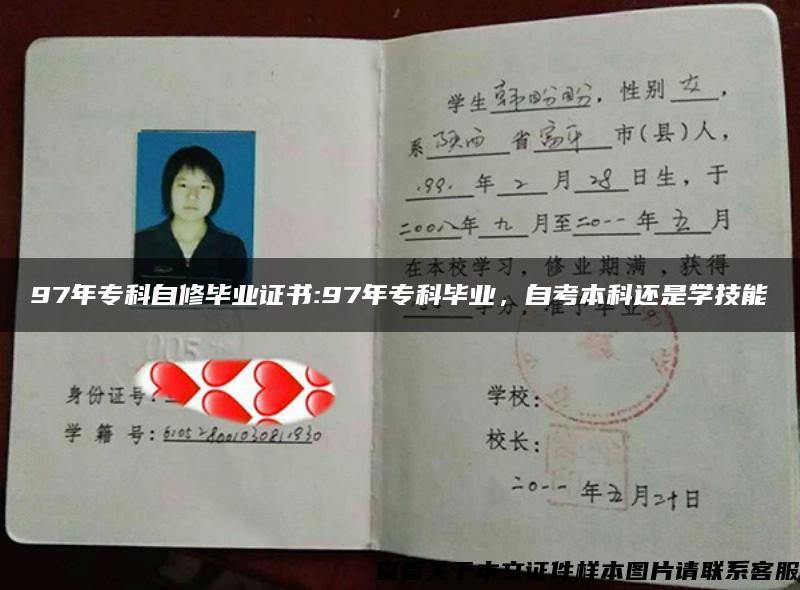 学生韩盼盼，性别女，
系陕西省富平市(县)人，
1991年2月28日生，于
二00八年九月至二0一一年五月
在本校学习，修业期满，获得
97年专科自修毕业证书:97年专科毕业，自考本科还是学技能
身份证号:
学籍号:
学校:
校长:
二0一一年五月二十日
查看关于本文证件样本图片请联系客服